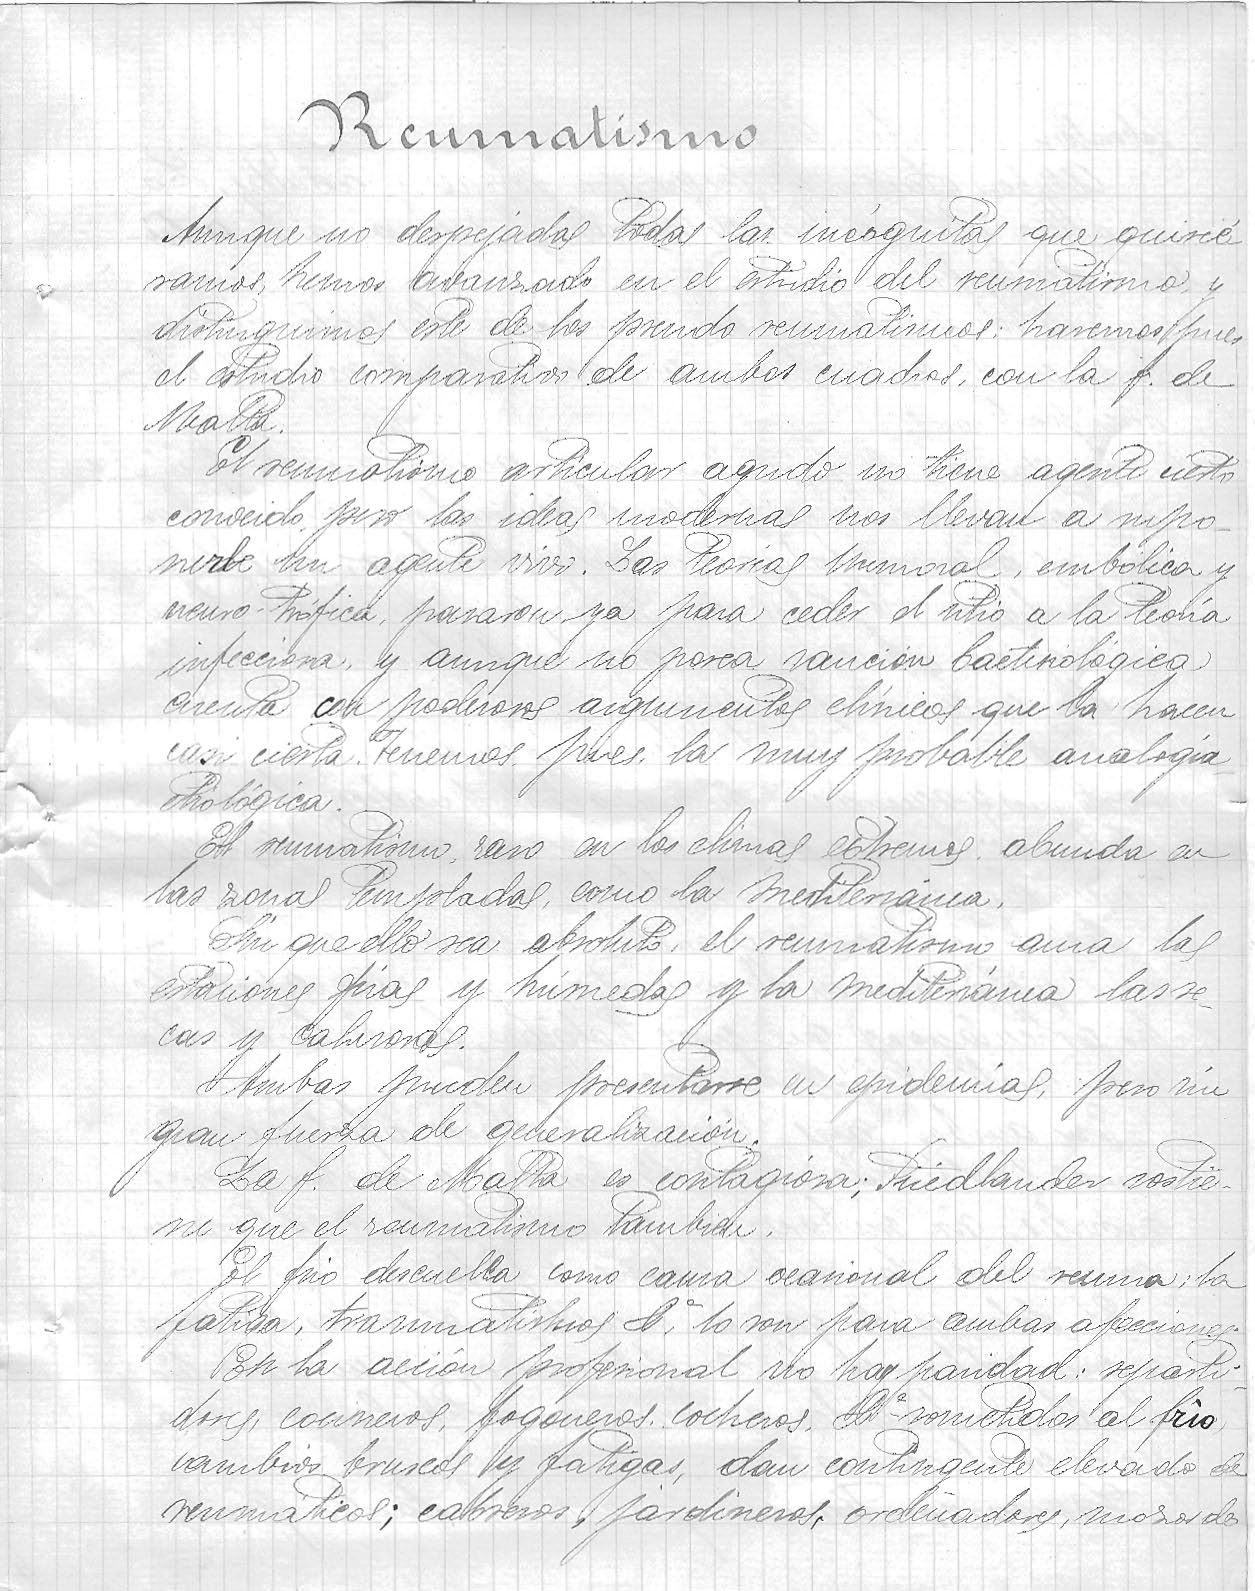 Reumatismo
Aunque no despejadas todas las incógnitas que quisié
ramos, hemos avanzado en el estudio del reumatismo, y
distinguimos este de los pseudo reumatismos: haremos pues
el estudio comparativo de ambos cuadros, con la f. de
Malta.
El reumatismo articular agudo no tiene agente cierto
conocido, pero las ideas modernas nos llevan a supo-
nerle un agente vivo. Las teorias humoral, embólica y
neuro-trófica, pasaron ya para ceder el sitio a la teoría
infecciosa, y aunque no posea sanción bacteriológica
cuenta con poderosos argumentos clínicos que la hacen
casi cierta. Tenemos, pues, la muy probable analogía
etiológica.
El reumatismo, raro en los climas extremos, abunda en
las zonas templadas, como la mediterránea.
Sin que ello sea absoluto, el reumatismo ama las
estaciones frías y húmedas y la mediterránea las se-
cas y calurosas.
Ambas pueden presentarse en epidemias, pero sin
gran fuerza de generalización.
La f. de Malta es contagiosa; Friedlander sostie-
ne que el reumatismo tambien.
El frio descuella como causa ocasional del reuma; la
fatiga, traumatismos &ª, lo son para ambas afecciones.
En la acción profesional no hay paridad: reparti-
dores, cocineros, fogoneros, cocheros, &ª sometidos al frio,
cambios bruscos y fatigas, dan contingente elevado de
reumáticos; cabreros, jardineros, ordeñadores, mozos de